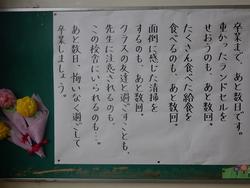 卒業まで、あと数日です。
重かったランドセルを
せおうのも、あと数回。
たくさん食べた給食を
食べるのも、あと数回。
面倒に感じた清掃を
するのも、あと数回。
クラスの友達と過ごすことも、
先生に注意されるのも、
この校舎にいられるのも…。
あと数日、悔いなく過ごして
卒業しましょう。